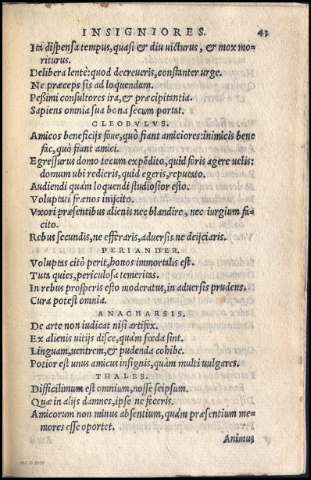 INSIGNIORES. 43
Ita dispensa tempus, quasi & diu victurus, & mox mo-
riturus.
Delibera lentè: quod decreueris, constanter urge.
Ne præceps sis ad loquendum.
Pessimi consultores ira, & præcipitantia.
Sapiens omnia sua bona secum portat.
CLEOBVLVS.
Amicos beneficijs foue, quò fiant amiciores: inimicis bene
fac, quò fiant amici.
Egressurus domo tecum expēdito, quid foris agere uelis:
domum ubi redieris, quid egeris, reputato.
Audiendi quàm loquendi studiosior esto.
Voluptati frænos inijcito.
Vxori præsentibus alienis nec blandire, nec iurgium fa-
cito.
Rebus secundis, ne efferaris, aduersis ne deijciaris.
PERIANDER.
Voluptas citò perit, honos immortalis est.
Tuta quies, periculosa temeritas.
In rebus prosperis esto moderatus, in aduersis prudens.
Cura potest omnia.
ANACHARSIS.
De arte non iudicat nisi artifex.
Ex alienis uitijs disce, quàm fœda sint.
Linguam, uentrem, & pudenda cohibe.
Potior est unus amicus insignis, quàm multi uulgares.
THALES.
Difficilimum est omnium, nosse seipsum.
Quæ in alijs damnes, ipse ne feceris.
Amicorum non minus absentium, quàm præsentium me-
mores esse oportet.
Animus